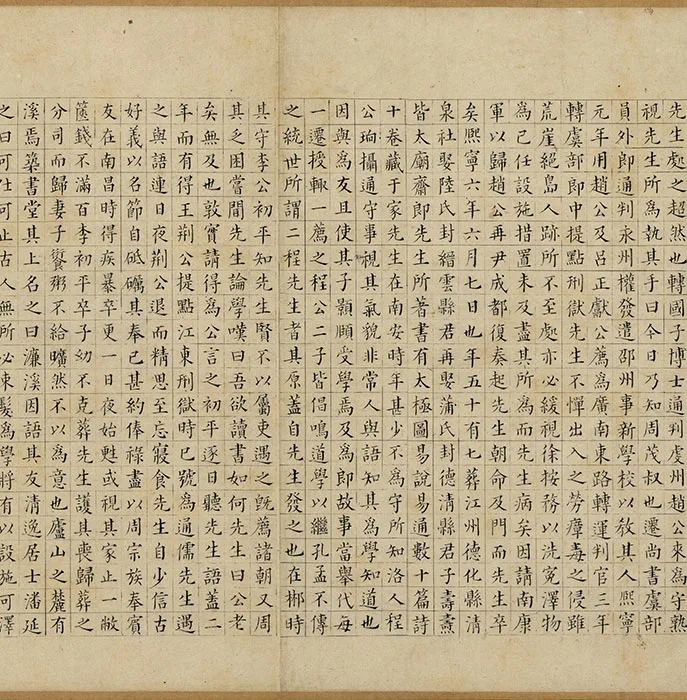 先生處之超然也轉國子博士通判虔州趙公來為守熟
視先生所為執其手曰今日乃知周茂叔也遷尚書虞部
員外郎通判永州權發遣邵州事新學校以教其人熙寧
元年用趙公及呂正獻公薦為廣南東路轉運判官三年
轉虞部郎中提點刑獄先生不憚出入之勞瘴毒之侵雖
荒崖絕島人跡所不至處亦必緩視徐按務以洗冤澤物
為己任設施措置未及盡其所為而先生病矣因請南康
軍以歸趙公再尹成都復奏起先生朝命及門而先生卒
矣熙寧六年六月七日也年五十有七葬江州德化縣清
泉社娶陸氏封縉雲縣君再娶蒲氏封德清縣君子壽燾
皆太廟齋郎先生所著書有太極圖易說易通數十篇詩
十卷藏于家先生在南安時年甚少不為守所知洛人程
公珦攝通守事視其氣貌非常人與語知其為學知道也
因與為友且使其子顥頤受學焉及為郎故事當舉代每
一遷授輒一薦之程公二子皆倡鳴道學以繼孔孟不傳
之統世所謂二程先生者其原蓋自先生發之也在郴時
其守李公初平知先生賢不以屬吏遇之既薦諸朝又周
其乏困嘗聞先生論學嘆曰吾欲讀書如何先生曰公老
矣無及也敦實請得為公言之初平逐日聽先生語蓋二
年而有得王荊公提點江東刑獄時已號為通儒先生遇
之與語連日夜荊公退而精思至忘寢食先生自少信古
好義以名節自砥礪其奉己甚約俸祿盡以周宗族奉賓
友在南昌時得疾暴卒更一日夜始甦或視其家止一敝
篋錢不滿百李初平卒子幼不克葬先生護其喪歸葬之
分司而歸妻子饘粥不給曠然不以為意也廬山之麓有
溪焉築書堂其上名之曰濂溪因語其友清逸居士潘延
之曰可仕可止古人無所必束髮為學將有以設施可澤